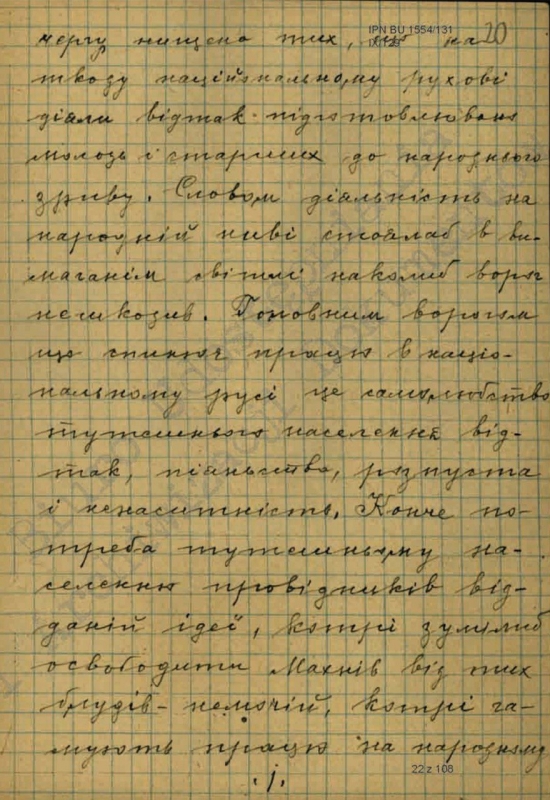 IPN BU 1554/131
20
чергу нищено тих, що на
шкоду національному рухові
діяли відтак підготовлювано
молодь і старших до народнього
зриву. Словом діяльність на
народній ниві стоялаб в ви-
маганім світлі наколиб ворог
нешкодив. Головним ворогом
що спиняє працю в націо-
нальному русі це самолюбство
тутешнього населення від-
так, пійньство, розпуста
і ненаситність. Конче по-
треба тутешньому на-
селенню провідників від-
даній ідеї, котрі зумілиб
освободити Махнів від тих
брудів-немочий, котрі га-
мують працю на народному
22 z 108